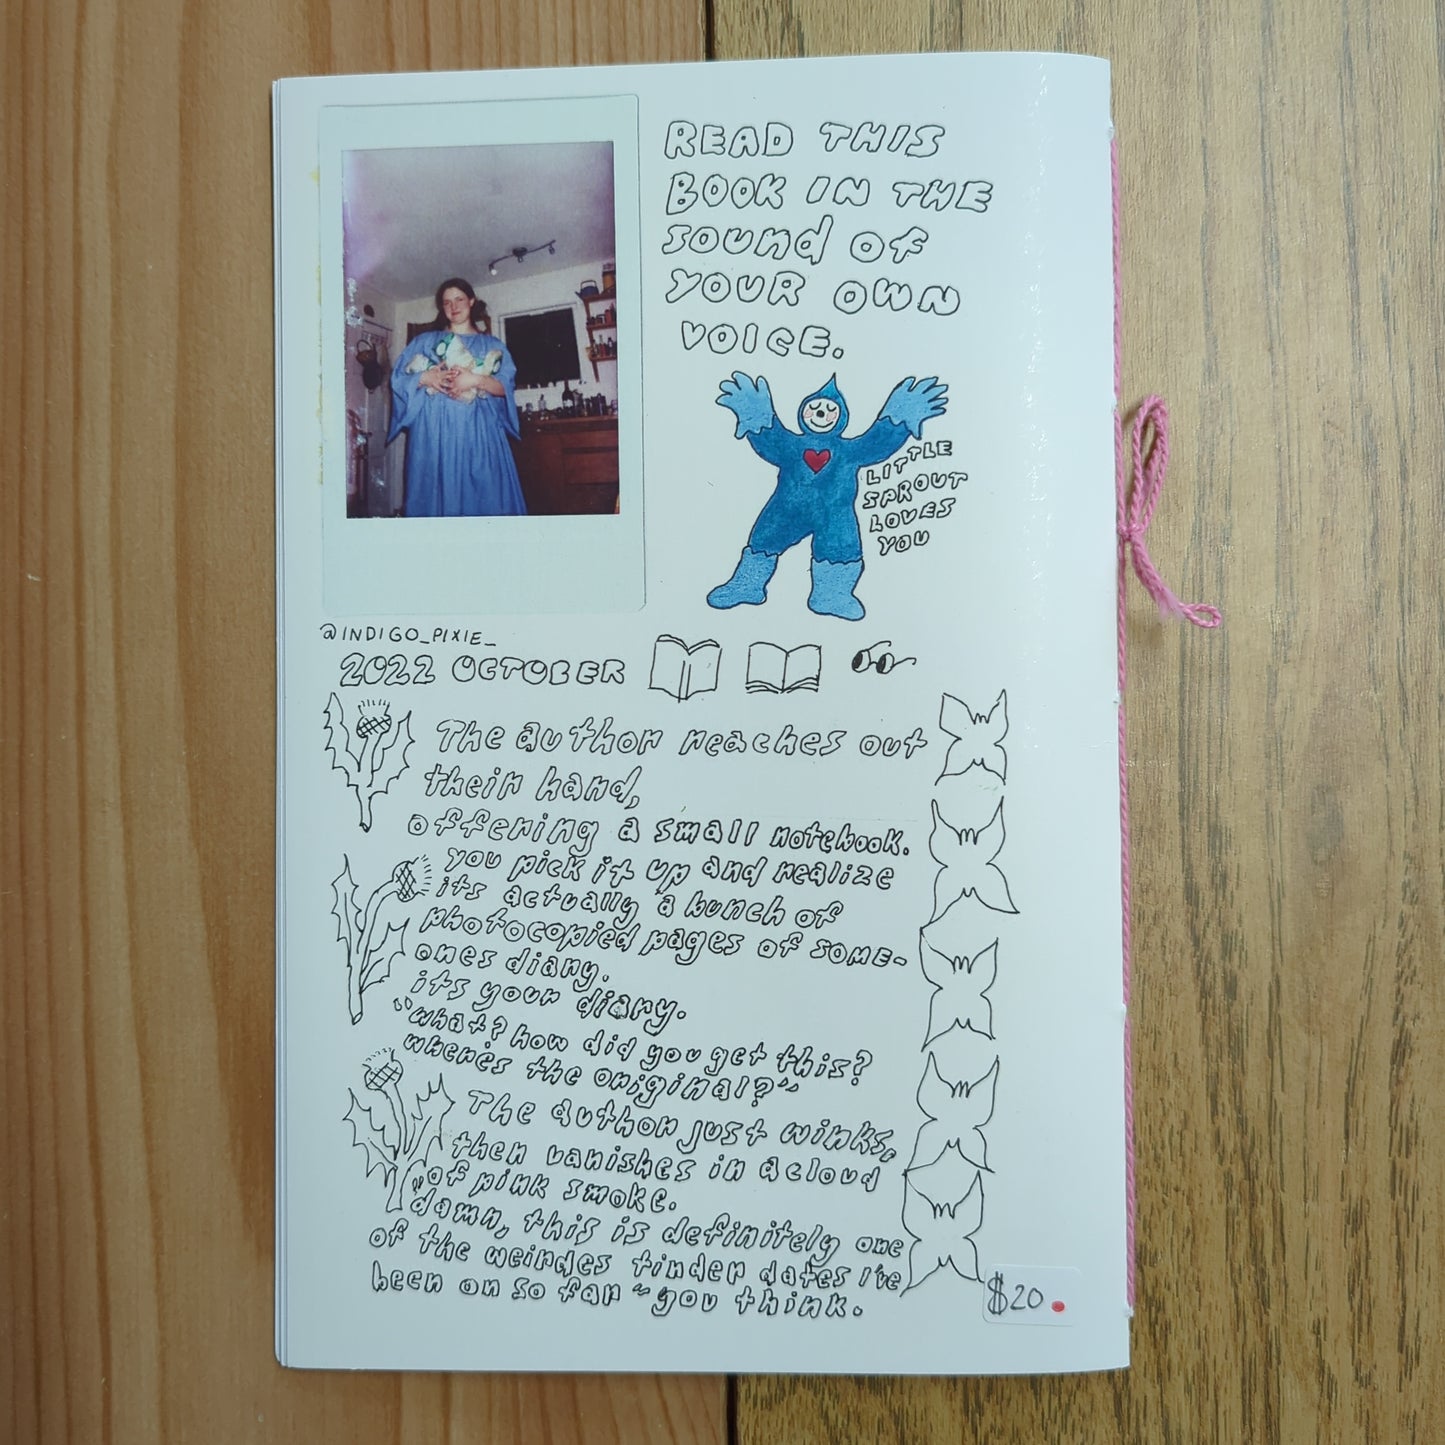 READ THIS
BOOK IN THE
SOUND OF
YOUR OWN
VOICE.
LITTLE
SPROUT
LOVES
YOU
@INDIGO_PIXIE_
2022 OCTOBER
The author reaches out
their hand,
offering a small notebook.
you pick it up and realize
its actually a bunch of
photocopied pages of some-
ones diary.
its your diary.
"what? how did you get this?
where's the original?"
The author just winks,
then vanishes in a cloud
of pink smoke.
"damn, this is definitely one
of the weirdes tinder dates I've
been on so far" you think.
$20.